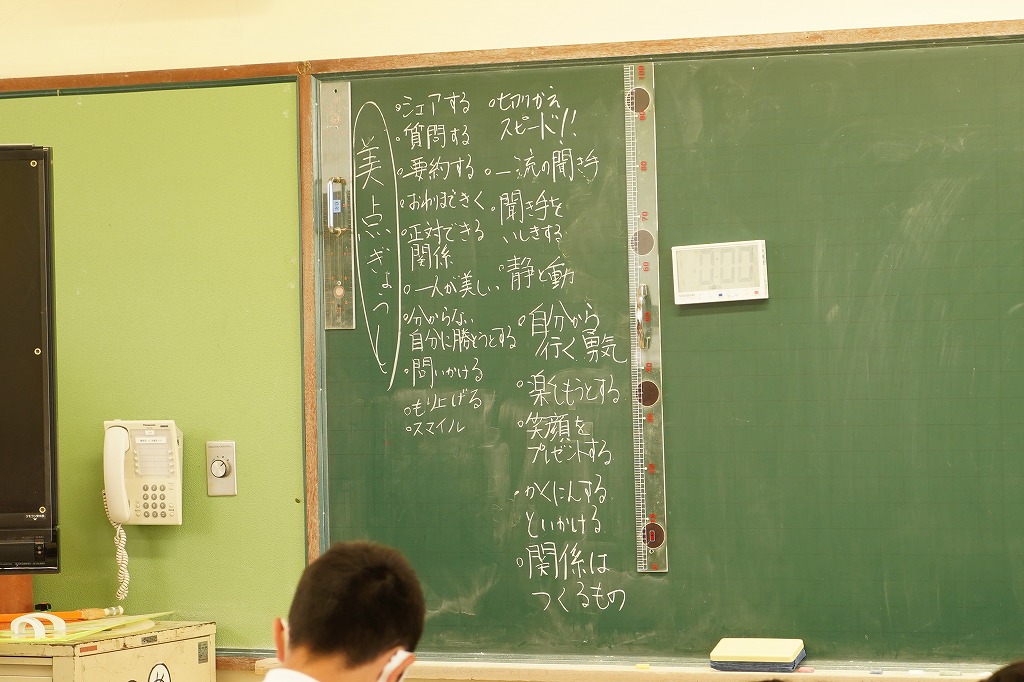 美点ぎょうし
・シェアする
・質問する
・要約する
・おわりまできく
・正対できる
関係
・一人が美しい
・分からない
自分に勝とうとする
・問いかける
・もり上げる
・スマイル
・切りかえ
スピード!!
・一流の聞き手
・聞き手を
いしきする
・静と動
・自分から
行く勇気
・楽しもうとする
・笑顔を
プレゼントする
・かくにんする
といかける
・関係は
つくるもの
100
90
80
70
60
Panasonic